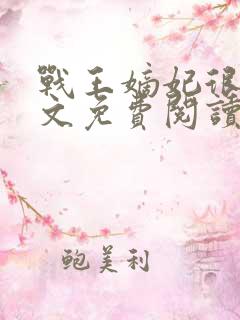 戰王嫡妃很
文免費閱讀
鮑美利